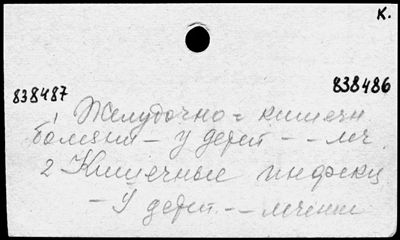 К.
838487 838486
1 Желудочно-кишечн
болезни – у детей – – леч.
2 Кишечные инфекц
– У детей – – лечение